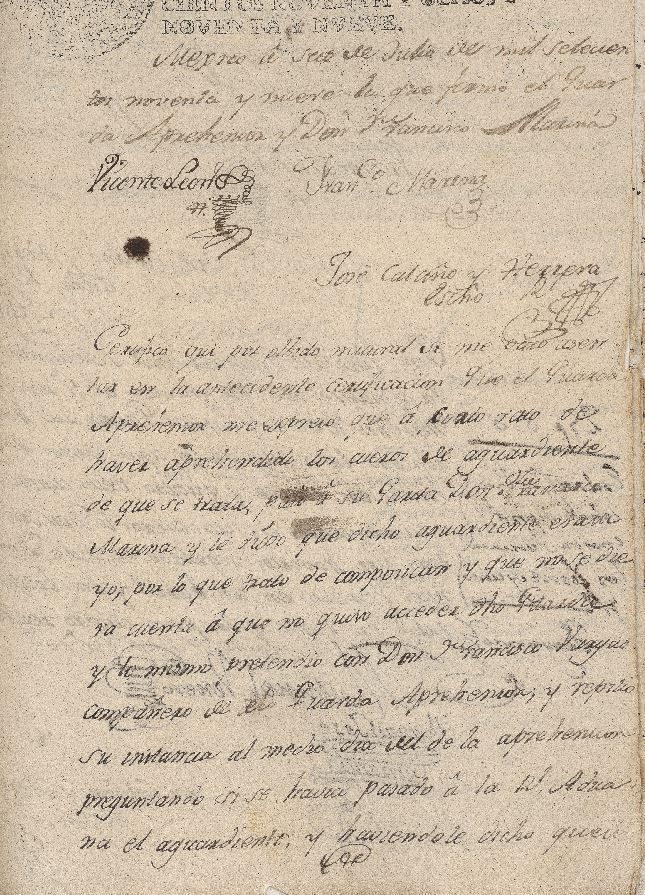 NOVENTA Y NUEVE.
Mexico â seis de Julio de mil setecien
tos noventa y nueve lo que firmó el Guar
da Aprehensor y Don Francisco Marina
Vicente Leon
Franco Marina
José Cataño y Herrera
Escño
Certifico que por olbido natural se me paso asen
tar en la antecedente certificacion que el Guarda
Aprehensor me expresó que â corto rato de
haver aprehendido los cueros de aguardiente
de que se trata, â su Garita Don Francisco
Marina y le dijo que dicho aguardiente era su
yo, por lo que trató de composicion y que no se die
ra cuenta â que no quiso acceder dho Guarda
y lo mismo pretendio con Don Francisco Vargas
compañero de el Guarda Aprehensor, y repitio
su instancia al medio dia de la aprehencion
preguntando si se havia pasado â la Rl. Adua
na el aguardiente, y haviendole dicho que